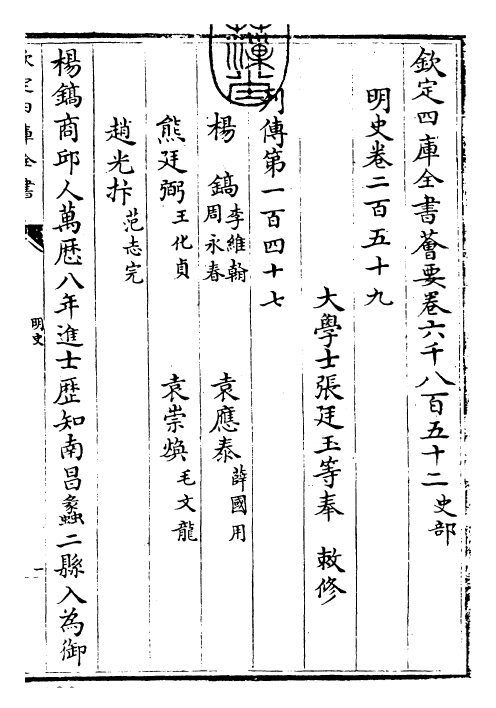 欽定四庫全書薈要卷六千八百五十二 史部
明史卷二百五十九
大學士張廷玉等奉 敕修
列傳第一百四十七
楊鎬 李維翰 周永春 袁應泰 薛國用
熊廷弼 王化貞 袁崇煥 毛文龍
趙光抃 范志完
楊鎬商邱人萬歷八年進士歷知南昌蠡二縣入為御
欽定四庫全書
明史
一